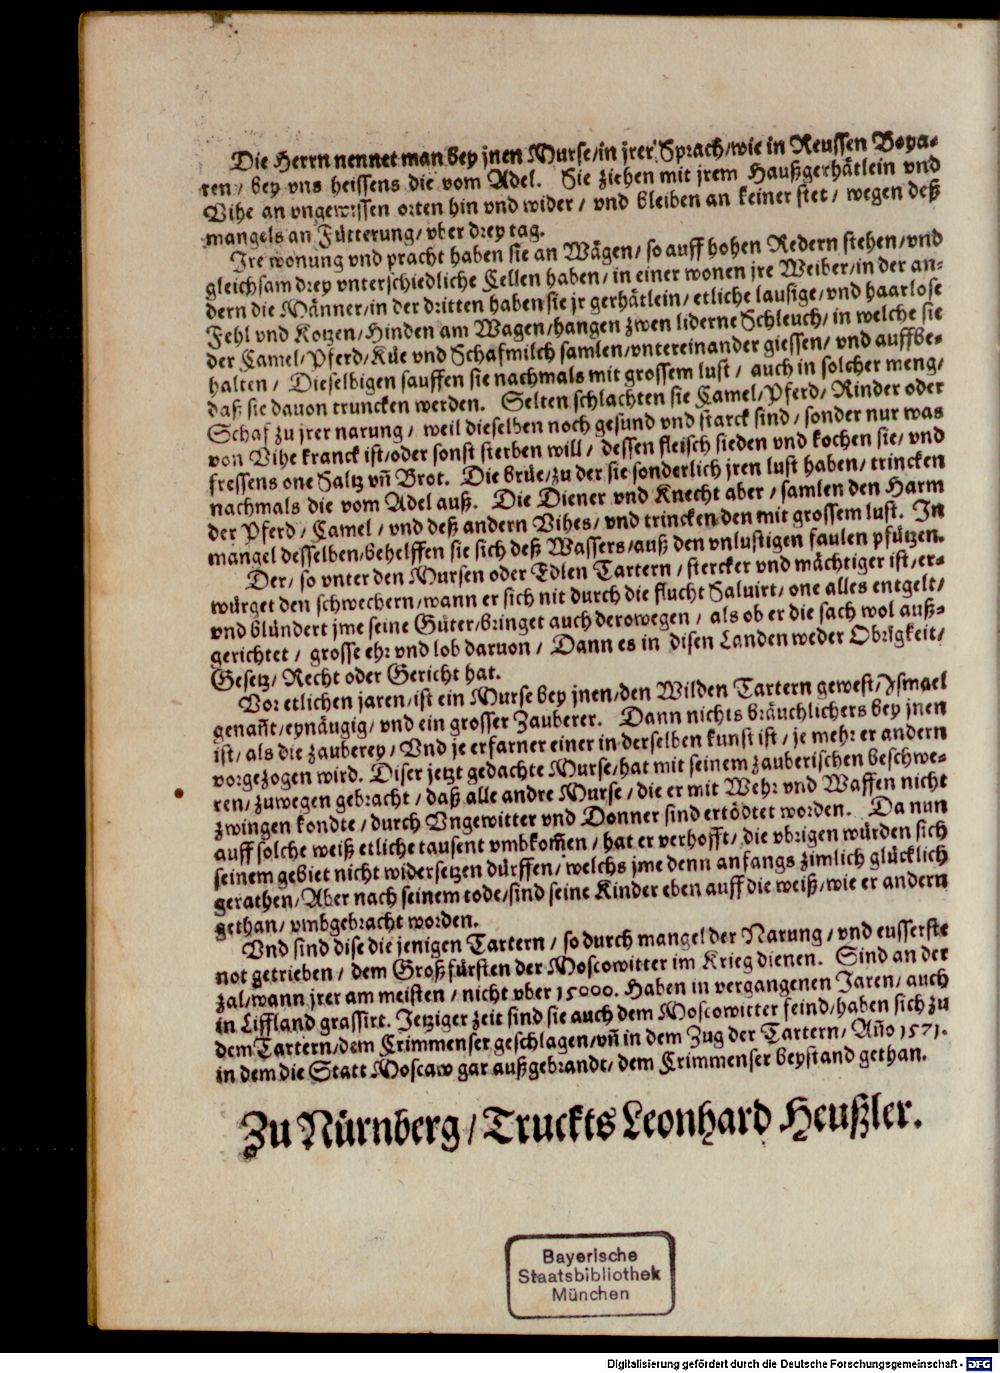 Die Herrn nennet man bey jnen Murse/in jrer Sprach/wie in Reussen Boya-
ren / bey vns heissens die vom Adel. Sie ziehen mit jrem Haußgerhätlein vnd
Vihe an vngewissen orten hin vnd wider / vnd bleiben an keiner stet / wegen deß
mangels an Fütterung/ vber drey tag.
Ire wonung vnd pracht haben sie an Wägen/ so auff hohen Redern stehen/vnd
gleichsam drey vnterschiedliche Cellen haben/ in einer wonen jre Weiber/in der an-
dern die Männer/in der dritten haben sie jr gerhätlein/ etliche lausige/vnd haarlose
Fehl vnd Kotzen/Hinden am Wagen/hangen zwen liderne Schleuch/ in welche sie
der Camel/Pferd/Küe vnd Schafmilch samlen/vntereinander giessen/ vnd auffbe-
halten / Dieselbigen sauffen sie nachmals mit grossem lust / auch in solcher meng/
daß sie dauon truncken werden. Selten schlachten sie Camel/Pferd/ Rinder oder
Schaf zu jrer narung / weil dieselben noch gesund vnd starck sind / sonder nur was
von Vihe kranck ist/oder sonst sterben will / dessen fleisch sieden vnd kochen sie/ vnd
fressens one Saltz vñ Brot. Die brüe/zu der sie sonderlich jren lust haben/ trincken
nachmals die vom Adel auß. Die Diener vnd Knecht aber / samlen den Harm
der Pferd / Camel / vnd deß andern Vihes/ vnd trincken den mit grossem lust. In
mangel desselben/behelffen sie sich deß Wassers/auß den vnlustigen faulen pfützen.
Der/ so vnter den Mursen oder Edlen Tartern / stercker vnd mächtiger ist/er-
würget den schwechern/wann er sich nit durch die flucht Saluirt/ one alles entgelt/
vnd blündert jme seine Güter/bringet auch derowegen / als ob er die sach wol auß-
gerichtet / grosse ehr vnd lob daruon / Dann es in disen Landen weder Obrigkeit/
Gesetz/ Recht oder Gericht hat.
Vor etlichen jaren/ist ein Murse bey jnen/den Wilden Tartern gewest/Ismael
genañt/eynäugig/ vnd ein grosser Zauberer. Dann nichts bräuchlichers bey jnen
ist/ als die zauberey / Vnd je erfarner einer in derselben kunst ist / je mehr er andern
vorgezogen wird. Diser jetzt gedachte Murse/hat mit seinem zauberischen beschwe-
ren/zuwegen gebracht / daß alle andre Murse / die er mit Wehr vnd Waffen nicht
zwingen kondte / durch Vngewitter vnd Donner sind ertödtet worden. Da nun
auff solche weiß etliche tausent vmbkom̃en / hat er verhofft/ die vbrigen würden sich
seinem gebiet nicht widersetzen dürffen/ welchs jme denn anfangs zimlich glücklich
gerathen/Aber nach seinem tode/sind seine Kinder eben auff die weiß/wie er andern
gethan/ vmbgebracht worden.
Vnd sind dise die jenigen Tartern / so durch mangel der Narung / vnd eusserste
not getrieben / dem Großfürsten der Moscowitter im Krieg dienen. Sind an der
zal/wann jrer am meisten / nicht vber 15000. Haben in vergangenen Jaren/ auch
in Liffland grassirt. Jetziger zeit sind sie auch dem Moscowitter feind/haben sich zu
dem Tartern/dem Crimmenser geschlagen/vñ in dem Zug der Tartern/ Año 1571.
in dem die Statt Moscaw gar außgebrandt/ dem Crimmenser beystand gethan.
Zu Nürnberg / Truckts Leonhard Heußler.
Bayerische
Staatsbibliothek
München
Digitalisierung gefördert durch die Deutsche Forschungsgemeinschaft - DFG